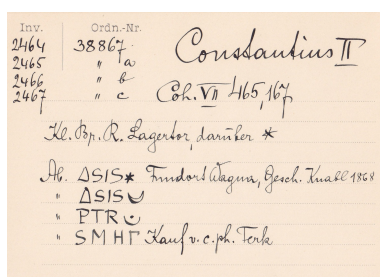 Inv. Ordn.-Nr.
2464 38867. Constantius II
2465 " a
2466 " b
2467 " c Coh. VII 465,167
Kl. Br. R. Lagertor, darüber *
Ab. ΔSIS* Fundort Wagna, Gesch. Knabl 1868
" ΔSIS◡
" PTR ◡̇
" SMHΓ Kauf v. c. ph.